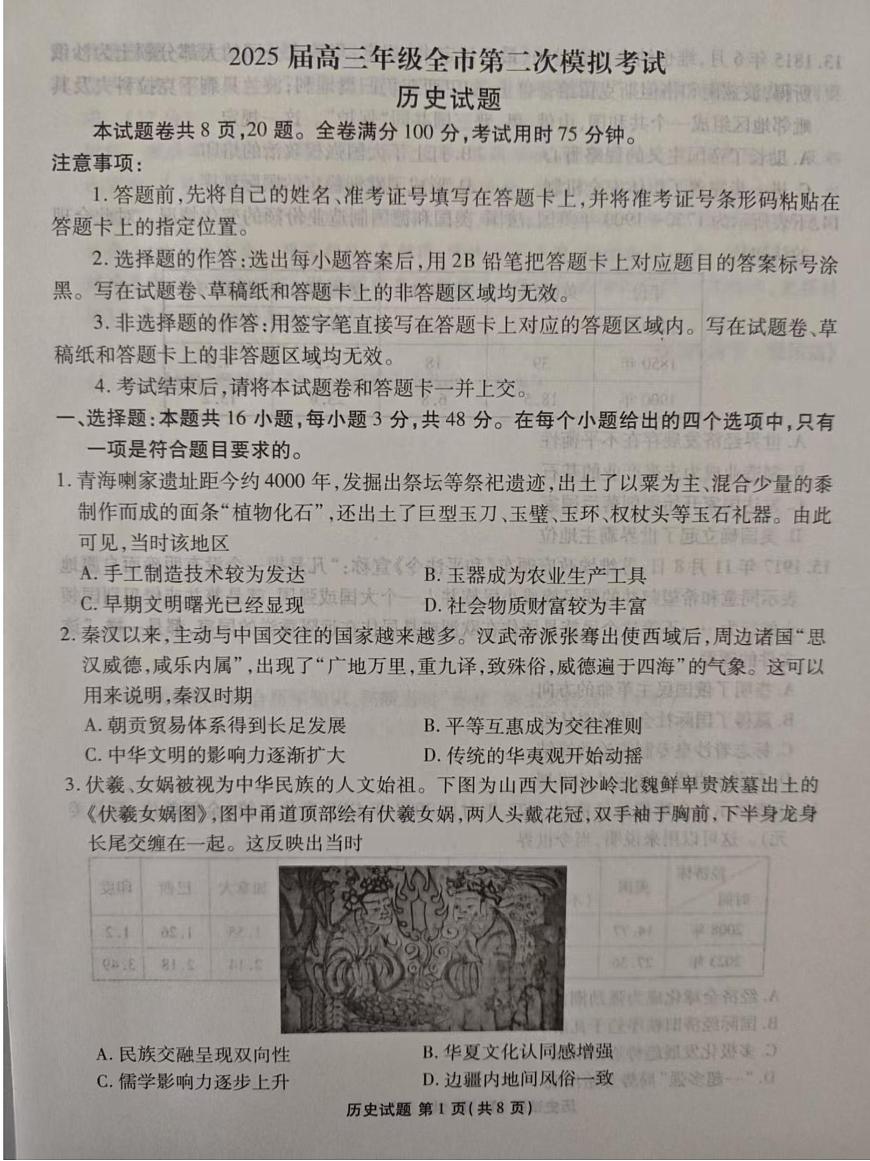 2025 届高三年级全市第二次模拟考试
历史试题
本试题卷共 8 页,20 题。全卷满分 100 分,考试用时 75 分钟。
注意事项:
1. 答题前,先将自己的姓名、准考证号填写在答题卡上,并将准考证号条形码粘贴在
答题卡上的指定位置。
2. 选择题的作答:选出每小题答案后,用 2B 铅笔把答题卡上对应题目的答案标号涂
黑。写在试题卷、草稿纸和答题卡上的非答题区域均无效。
3. 非选择题的作答:用签字笔直接写在答题卡上对应的答题区域内。写在试题卷、草
稿纸和答题卡上的非答题区域均无效。
4. 考试结束后,请将本试题卷和答题卡一并上交。
一、选择题:本题共 16 小题,每小题 3 分,共 48 分。在每个小题给出的四个选项中,只有
一项是符合题目要求的。
1. 青海喇家遗址距今约 4000 年,发掘出祭坛等祭祀遗迹,出土了以粟为主、混合少量的黍
制作而成的面条“植物化石”,还出土了巨型玉刀、玉璧、玉环、权杖头等玉石礼器。由此
可见,当时该地区
A. 手工制造技术较为发达 B. 玉器成为农业生产工具
C. 早期文明曙光已经显现 D. 社会物质财富较为丰富
2. 秦汉以来,主动与中国交往的国家越来越多。汉武帝派张骞出使西域后,周边诸国“思
汉威德,咸乐内属”,出现了“广地万里,重九译,致殊俗,威德遍于四海”的气象。这可以
用来说明,秦汉时期
A. 朝贡贸易体系得到长足发展 B. 平等互惠成为交往准则
C. 中华文明的影响力逐渐扩大 D. 传统的华夷观开始动摇
3. 伏羲、女娲被视为中华民族的人文始祖。下图为山西大同沙岭北魏鲜卑贵族墓出土的
《伏羲女娲图》,图中甬道顶部绘有伏羲女娲,两人头戴花冠,双手袖于胸前,下半身龙身
长尾交缠在一起。这反映出当时
A. 民族交融呈现双向性 B. 华夏文化认同感增强
C. 儒学影响力逐步上升 D. 边疆内地间风俗一致
历史试题 第 1 页(共 8 页)